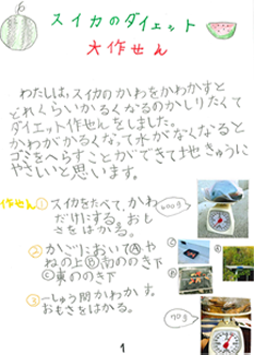 スイカのダイエット
大作せん
わたしは、スイカのかわをかわかすと
どれくらいかるくなるのかしりたくて
ダイエット作せんをしました。
かわがかるくなって水がなくなると
ゴミをへらすことができて地きゅうに
やさしいと思います。
作せん① スイカをたべて、かわ
だけにする。おも
さをはかる。
② かごにおいてⒶや
ねの上Ⓑ南ののき下
Ⓒ東ののき下
③ 一しゅう間かわかす。
おもさをはかる。
Ⓒ
Ⓐ
Ⓑ
1